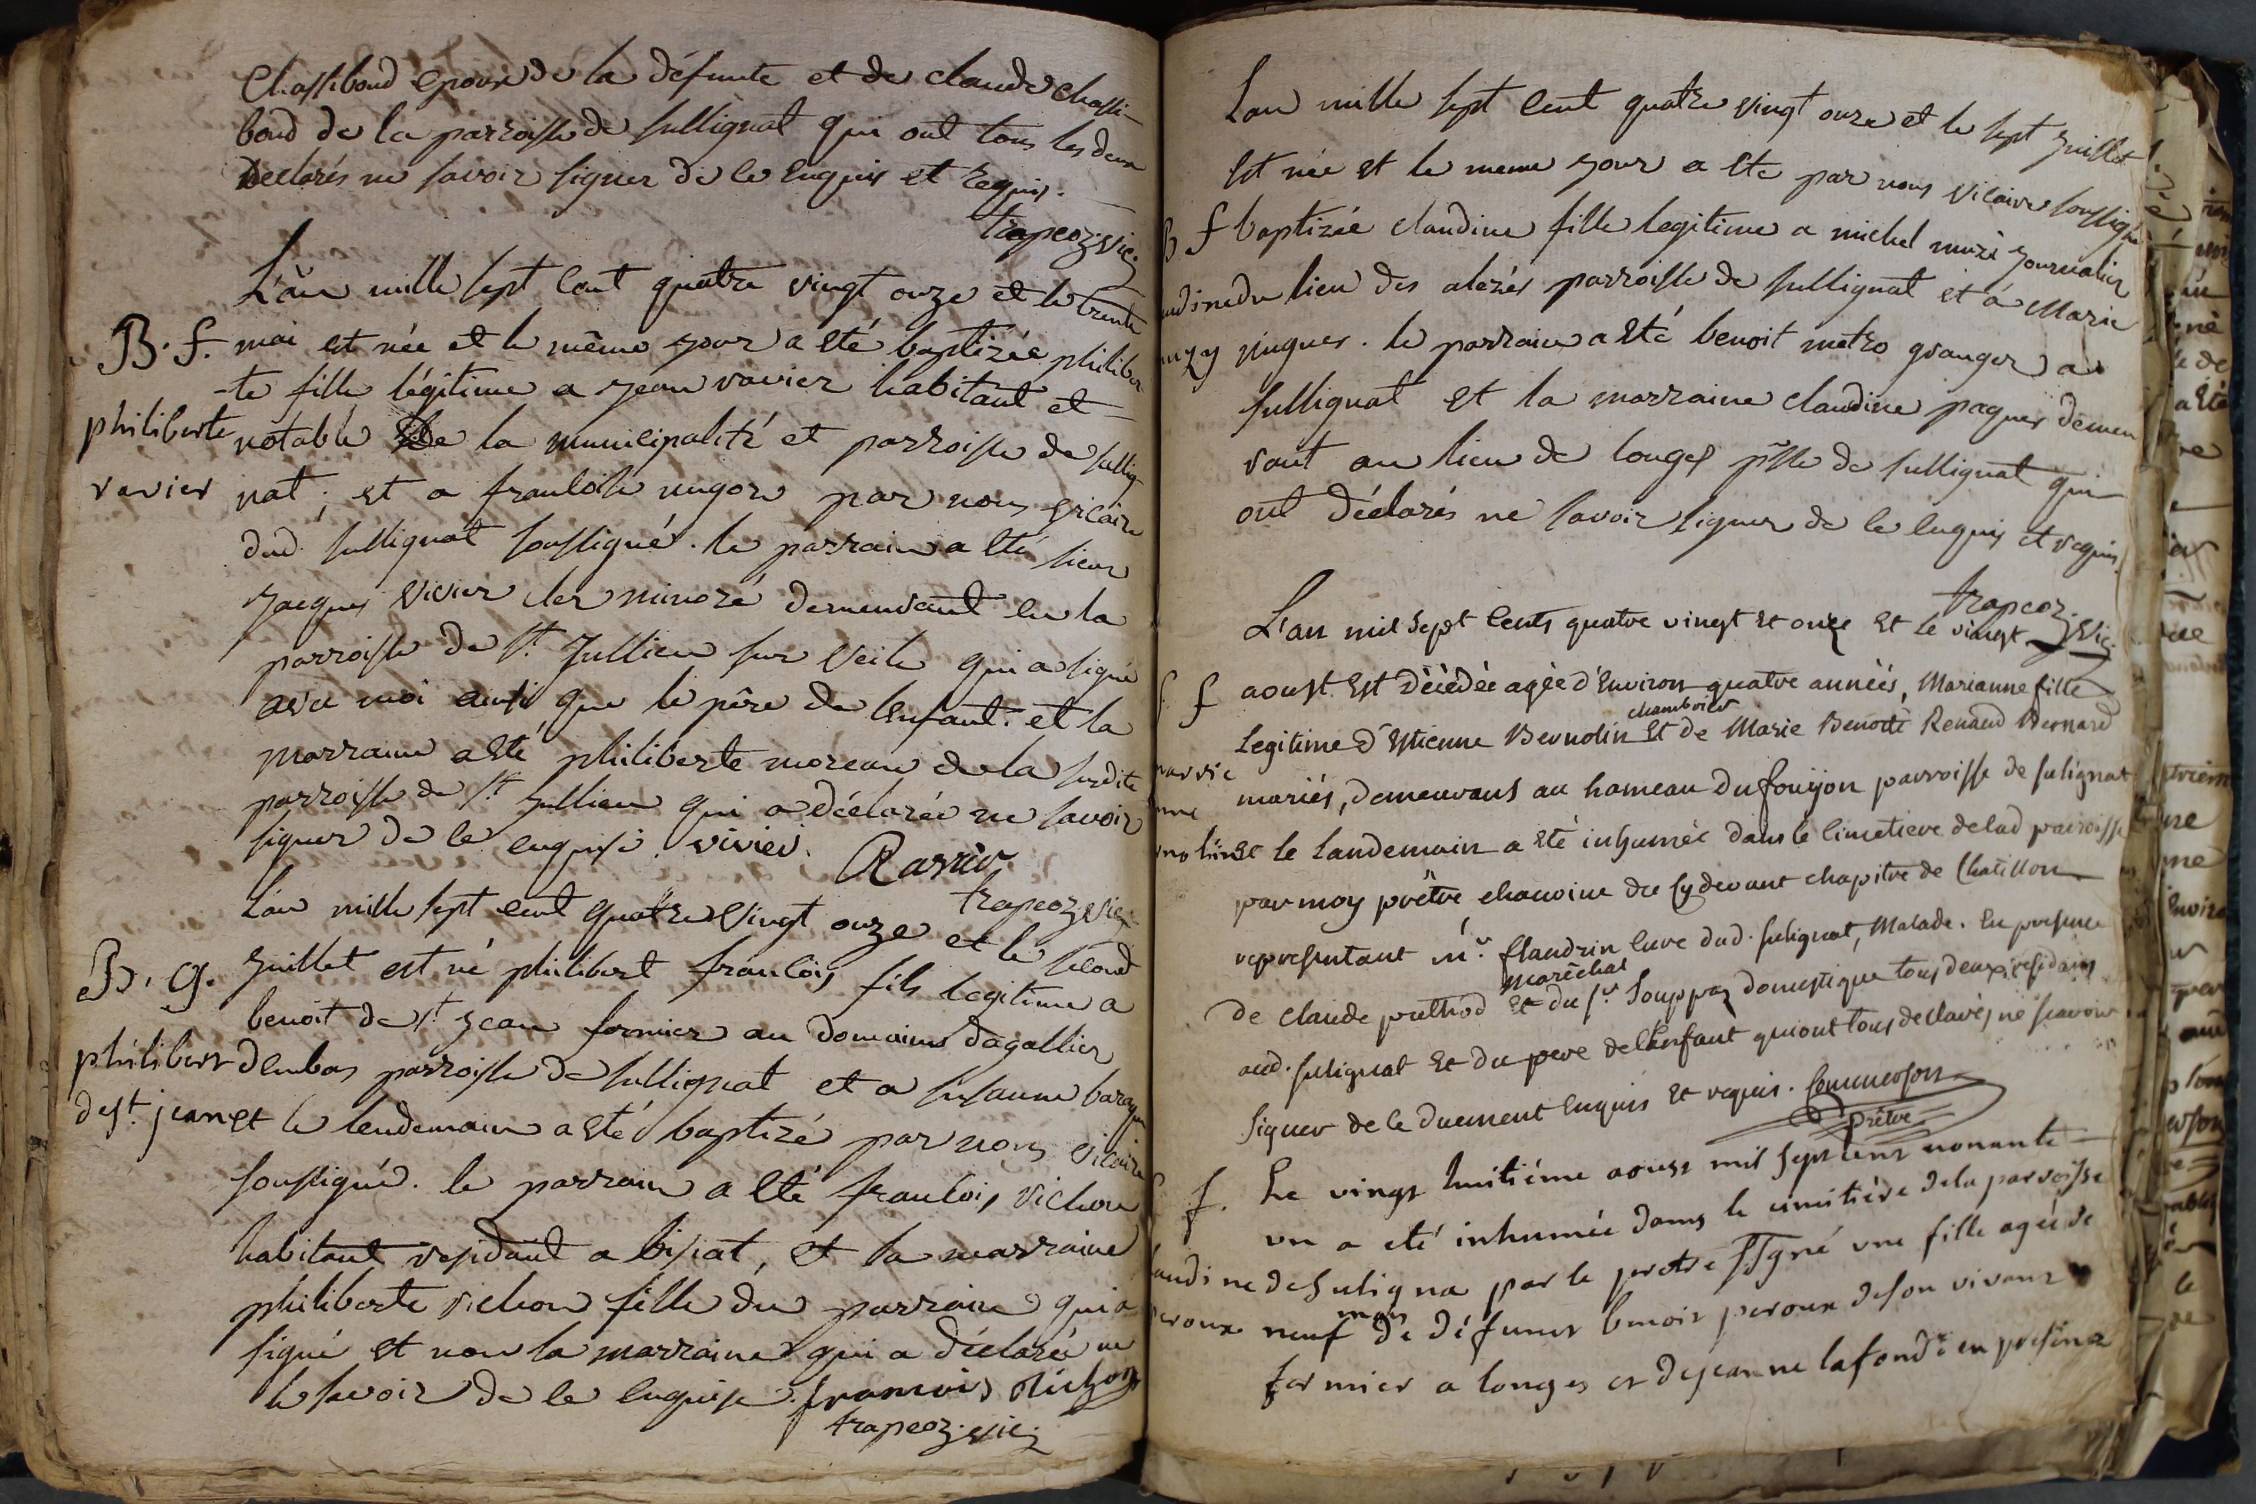 Chassiboud epoux de la défunte et de claude chassi-
boud de la parroisse de sullignat qui ont tous les deux
declarés ne savoir signer de ce enquis et requis.
trapeoz vic.
L'an mille sept cent quatre vingt onze et le trente
B. f. mai est née et le même jour a été baptizée philiber
-te fille légitime a jean ravier habitant et
philiberte notable de la municipalité et parroisse de sullig-
ravier nat; et a francoise mugon par nous vicaire
dud. sullignat soussigné. le parrain a été sieur
jacques vivier cler minoré demeurant en la
parroisse de st. jullien sur veile qui a signé
avec moi ainsi que le père de l'enfant. et la
marraine a été philiberte moreau de la susdite
parroisse de st jullien qui a déclarée ne savoir
signer de ce enquise. vivier. Ravier
trapeoz vic.
L'an mille sept cent quatre vingt onze et le second
B. g. juillet est né philibert francois fils legitime a
benoit de st. jean fermier au domaine dagallier
philibert denbas parroisse de sullignat et a susanne
de st. jean et le lendemain a été baptizé par nous vicaire
soussigné. le parrain a été francois vichon
habitant residant a bisiat, et la marraine
philiberte vichon fille du parrain qui a
signé et non la marraine qui a déclarée ne
le savoir de ce enquise. francois vichon
trapeoz. vic.
L'an mille sept cent quatre vingt onze et le sept juillet
est née et le meme jour a ete par nous vicaire soussigné
B f baptizée claudine fille legitime a michel muzi journalier
udine du lieu des alezés parroisse de sullignat et a Marie
uzy juguer. le parrain a été benoit metro granger a
sullignat et la marraine claudine paquer demeu
rant au lieu de longes psse de sullignat qui
ont déclarés ne savoir signer de ce enquis et requis.
trapeoz. vic.
L'an mil sept cents quatre vingt et onze et le vingt
f aoust est décédée agée d'environ quatre années, Marianne fille
chambrier
Legitime d'Etienne Bernolin et de Marie Benoite Renaud Bernard
mariés, demeurans au hameau du fouijon parroisse de sulignat
nolin et le landemain a été inhumée dans le cimetiere de lad parroisse
par moy prêtre chanoine du cy devant chapitre de Chatillon
representant mr. flandrin curé dud. sulignat, Malade. En presence
maréchal
de claude prethod et du sr. Souppaz domestique tous deux residans
aud. sulignat et du pere de l'enfant qui ont tous declarés ne scavoir
signer de ce duement enquis et requis. Commerson
prêtre
f. Le vingt huitiéme aoust mil sept cent nonante
un a eté inhumée dans le cimitière de la parroisse
audine de Suligna par le pretre ssigné une fille agée de
mois
eroux neuf de défunct benoit peroux de son vivant
fermier a longes et de jeanne lafond en presence